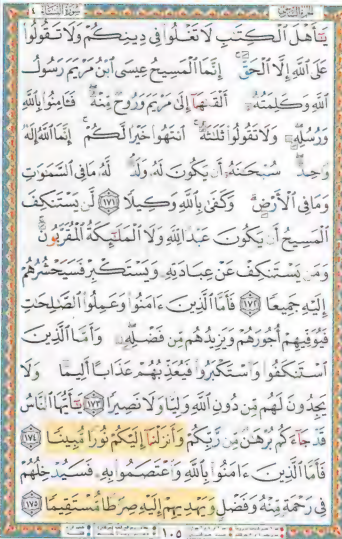 سورة النساء ٤
يَـٰٓأَهۡلَ ٱلۡكِتَـٰبِ لَا تَغۡلُوا۟ فِى دِينِكُمۡ وَلَا تَقُولُوا۟
عَلَى ٱللَّهِ إِلَّا ٱلۡحَقَّ إِنَّمَا ٱلۡمَسِيحُ عِيسَى ٱبۡنُ مَرۡيَمَ رَسُولُ
ٱللَّهِ وَكَلِمَتُهُۥٓ أَلۡقَىٰهَآ إِلَىٰ مَرۡيَمَ وَرُوحٌ مِّنۡهُ فَـَٔامِنُوا۟ بِٱللَّهِ
وَرُسُلِهِۦ وَلَا تَقُولُوا۟ ثَلَـٰثَةٌ ٱنتَهُوا۟ خَيۡرًا لَّكُمۡ إِنَّمَا ٱللَّهُ إِلَـٰهٌ
وَٰحِدٌ سُبۡحَـٰنَهُۥٓ أَن يَكُونَ لَهُۥ وَلَدٌ لَّهُۥ مَا فِى ٱلسَّمَـٰوَٰتِ
وَمَا فِى ٱلۡأَرۡضِ وَكَفَىٰ بِٱللَّهِ وَكِيلًا ١٧١ لَّن يَسۡتَنكِفَ
ٱلۡمَسِيحُ أَن يَكُونَ عَبۡدًا لِّلَّهِ وَلَا ٱلۡمَلَـٰٓئِكَةُ ٱلۡمُقَرَّبُونَ
وَمَن يَسۡتَنكِفۡ عَنۡ عِبَادَتِهِۦ وَيَسۡتَكۡبِرۡ فَسَيَحۡشُرُهُمۡ
إِلَيۡهِ جَمِيعًا ١٧٢ فَأَمَّا ٱلَّذِينَ ءَامَنُوا۟ وَعَمِلُوا۟ ٱلصَّـٰلِحَـٰتِ
فَيُوَفِّيهِمۡ أُجُورَهُمۡ وَيَزِيدُهُم مِّن فَضۡلِهِۦ وَأَمَّا ٱلَّذِينَ
ٱسۡتَنكَفُوا۟ وَٱسۡتَكۡبَرُوا۟ فَيُعَذِّبُهُمۡ عَذَابًا أَلِيمًا وَلَا
يَجِدُونَ لَهُم مِّن دُونِ ٱللَّهِ وَلِيًّا وَلَا نَصِيرًا ١٧٣ يَـٰٓأَيُّهَا ٱلنَّاسُ
قَدۡ جَآءَكُم بُرۡهَـٰنٌ مِّن رَّبِّكُمۡ وَأَنزَلۡنَآ إِلَيۡكُمۡ نُورًا مُّبِينًا ١٧٤
فَأَمَّا ٱلَّذِينَ ءَامَنُوا۟ بِٱللَّهِ وَٱعۡتَصَمُوا۟ بِهِۦ فَسَيُدۡخِلُهُمۡ
فِى رَحۡمَةٍ مِّنۡهُ وَفَضۡلٍ وَيَهۡدِيهِمۡ إِلَيۡهِ صِرَٰطًا مُّسۡتَقِيمًا ١٧٥
١٠٥